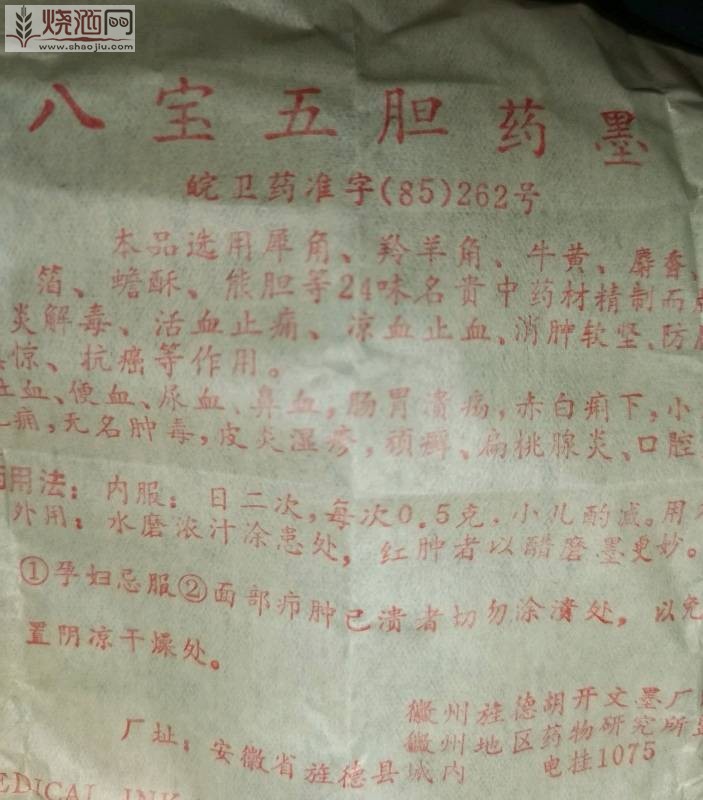 烧酒网
www.shaojiu.com
八宝五胆药墨
皖卫药准字(85)262号
本品选用犀角、羚羊角、牛黄、麝香、
箔、蟾酥、熊胆等24味名贵中药材精制而
炎解毒、活血止痛、凉血止血、消肿软坚、防
惊、抗癌等作用。
血、便血、尿血、鼻血,肠胃溃疡,赤白痢下,小
痛,无名肿毒,皮炎湿疹,顽癣、扁桃腺炎、口腔
用法:内服:日二次,每次0.5克,小儿酌减。用
外用:水磨浓汁涂患处,红肿者以醋磨墨更妙。
①孕妇忌服②面部疖肿已溃者切勿涂溃处,以免
置阴凉干燥处。
徽州旌德胡开文墨厂
徽州地区药物研究所
厂址:安徽省旌德县城内 电挂1075
EDICAL INK